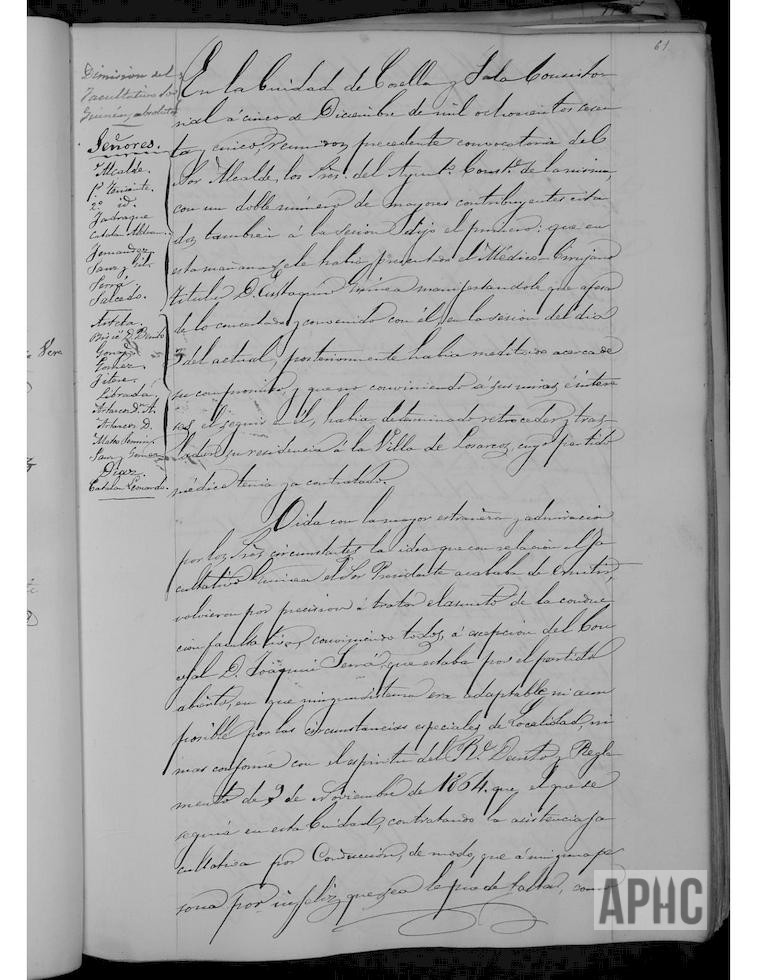 61
Dimision del
Facultativo Sor
Guinea, absoluta
Señores.
Alcalde.
1º Teniente.
2º id.
Jadraque
Catalan Aldea
Fernandez
Sanz y Gil
Serrá
Salcedo.
Arteta.
Gomez.
Librada
D. A.
D.
Mateo
Sanz y Gomez
Diaz.
Catalan Leonardo.
En la Ciudad de Corella y Sala Consisto-
rial á cinco de Diciembre de mil ochocientos sesen-
ta y cinco, reunidos, precedente convocatoria del
Sor Alcalde, los Sres. del Ayuntº Constl de la misma,
con un doble número de mayores contribuyentes cita-
dos tambien á la sesion dijo el primero: que en
esta mañana se le habia presentado el Médico-Cirujano
titular D. Eustaquio Guinea manifestandole que apesar
de lo concertado y convenido con él, en la sesion del dia
3 del actual, posteriormente habia meditado acerca de
su compromiso, y que no conviniendo á sus miras é intere-
ses el seguir en él, habia determinado retroceder y tras-
ladar su residencia á la Villa de Losarcos, cuyo partido
médico tenia ya contratado.
Oida con la mayor estrañeza y admiracion
por los Sres circunstantes la idea que con relacion al fa-
cultativo Guinea el Sor Presidente acababa de emitir,
volvieron por precision á tratar el asunto de la conduc-
cion facultativa, conviniendo todos, á escepcion del Con-
cejal D. Joaquin Serrá, que estaba por el partido
abierto, en que ningun sistema era adaptable ni aun
posible por las circunstancias especiales de Localidad, ni
mas conforme con el espiritu del Rl Decreto y Regla-
mento de 9 de Noviembre de 1864, que, el que se
seguia en esta Ciudad, contratando la asistencia fa-
cultativa por Conduccion, de modo, que á ninguna per
sona por infeliz que sea le pueda faltar, como
APHC